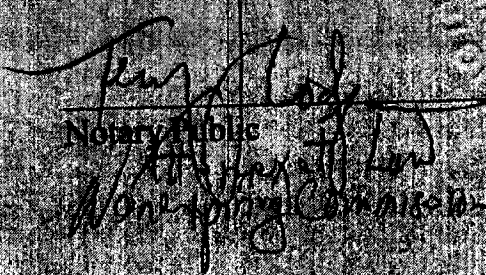 Terry Lodge
Notary Public
Attorney at Law
Nonexpiring Commission